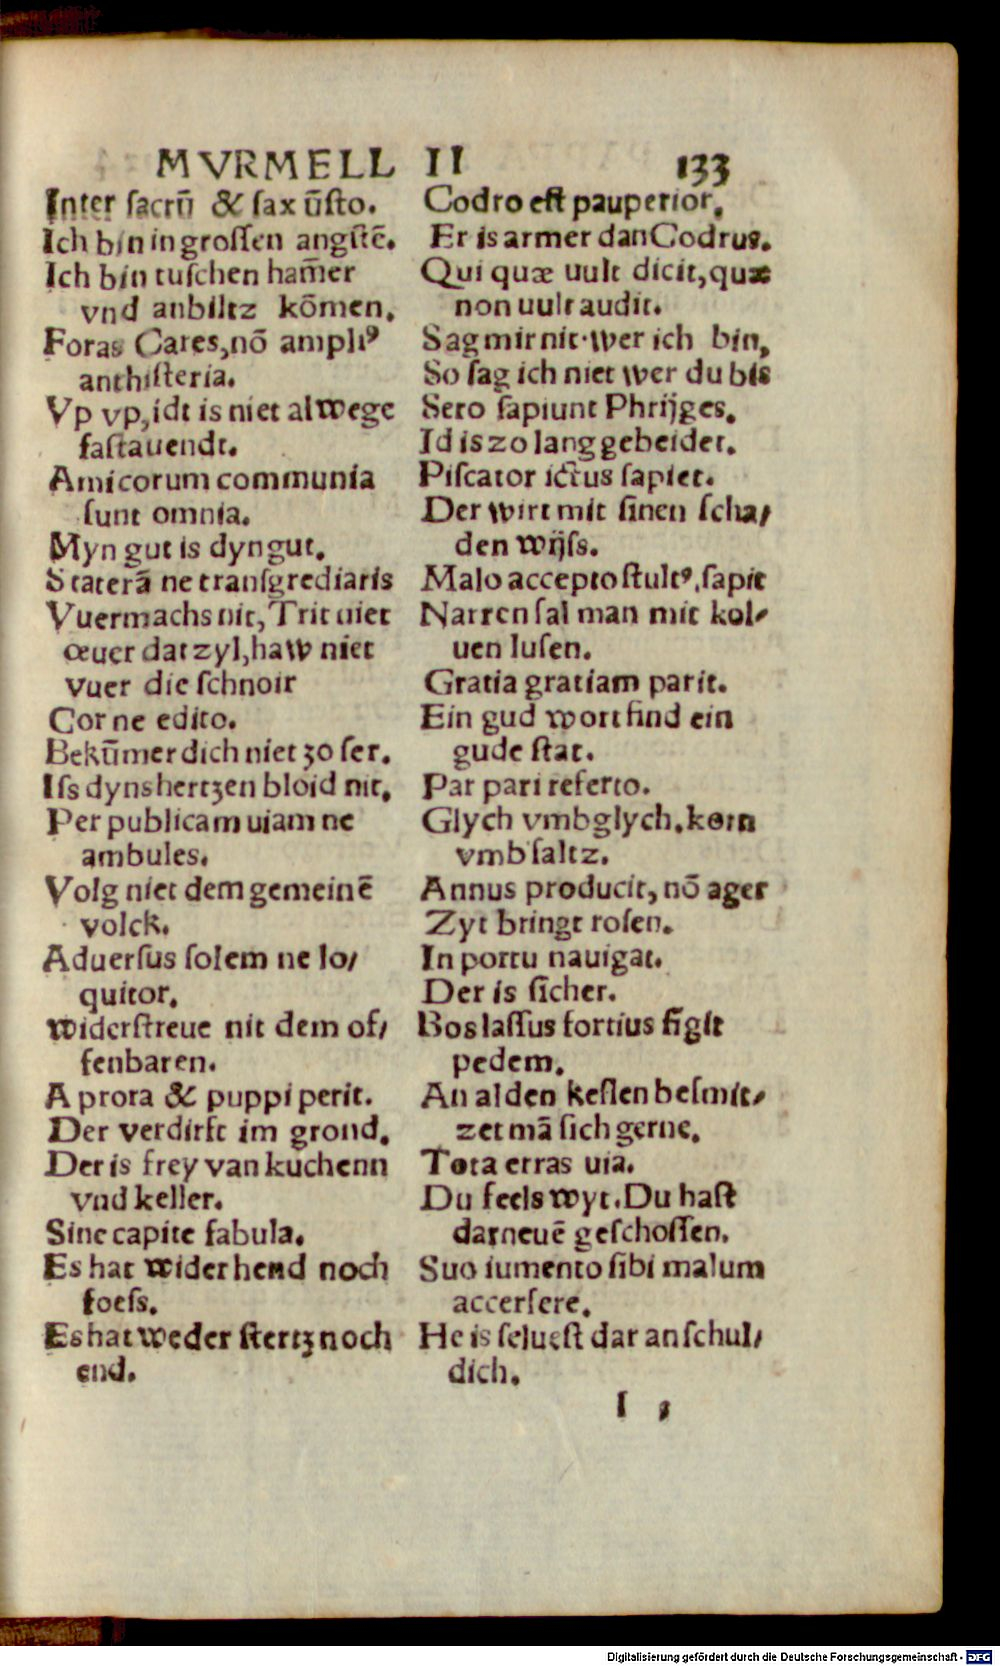 MVRMELL II 133
Inter sacrū & sax ūsto.
Ich bin in grossen angstē.
Ich bin tuschen ham̄er
vnd anbiltz kōmen.
Foras Cares, nō ampliꝰ
anthisteria.
Vp vp, idt is niet alwege
fastauendt.
Amicorum communia
sunt omnia.
Myn gut is dyn gut.
Staterā ne transgrediaris
Vuermachs nit, Trit niet
œuer dat zyl, haw niet
vuer die schnoir
Cor ne edito.
Bekūmer dich niet zo ser.
Iss dyns hertzen bloid nit.
Per publicam uiam ne
ambules.
Volg niet dem gemeinē
volck.
Aduersus solem ne lo/
quitor.
widerstreue nit dem of/
fenbaren.
A prora & puppi perit.
Der verdirft im grond.
Der is frey van kuchenn
vnd keller.
Sine capite fabula.
Es hat wider hend noch
foess.
Es hat weder stertz noch
end.
Codro est pauperior.
Er is armer dan Codrus.
Qui quæ uult dicit, quæ
non uult audit.
Sag mir nit wer ich bin,
So sag ich niet wer du bis
Sero sapiunt Phrijges.
Id is zo lang gebeidet.
Piscator ictus sapiet.
Der wirt mit sinen scha/
den wijss.
Malo accepto stultꝰ sapit
Narren sal man mit kol/
uen lusen.
Gratia gratiam parit.
Ein gud wort find ein
gude stat.
Par pari referto.
Glych vmb glych. korn
vmb saltz.
Annus producit, nō ager
Zyt bringt rosen.
In portu nauigat.
Der is sicher.
Bos lassus fortius figit
pedem.
An alden keslen besmit/
zet mā sich gerne.
Tota erras uia.
Du feels wyt. Du hast
darneuē geschossen.
Suo iumento sibi malum
accersere.
He is seluest dar an schul/
dich.
Digitalisierung gefördert durch die Deutsche Forschungsgemeinschaft - DFG